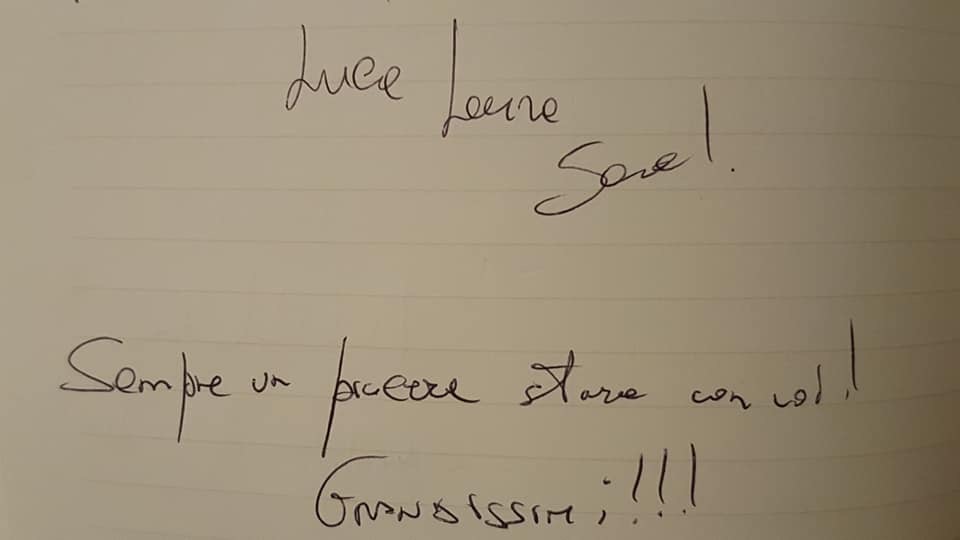 Luca Laura
Sara!
Sempre un piacere stare con voi!
GRANDISSIMi!!!